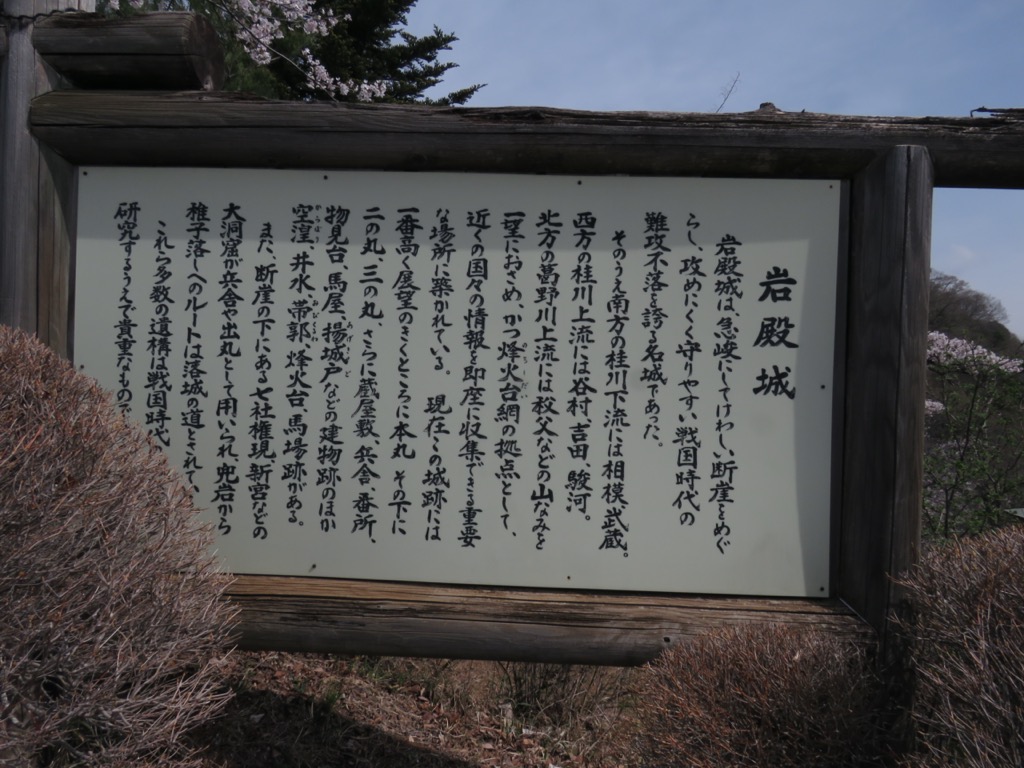 岩殿城
岩殿城は、急峻にしてけわしい断崖をめぐ
らし、攻めにくく守りやすい戦国時代の
難攻不落を誇る名城であった。
そのうえ南方の桂川下流には相模、武蔵。
西方の桂川上流には谷村、吉田、駿河。
北方の葛野川上流には秩父などの山なみを
一望におさめ、かつ烽火台網の拠点として、
近くの国々の情報を即座に収集できる重要
な場所に築かれている。現在この城跡には
一番高く展望のきくところに本丸 その下に
二の丸、三の丸、さらに蔵屋敷、兵舎、番所、
物見台、馬屋、揚城戸などの建物跡のほか
空湟、井水、帯郭、烽火台、馬場跡がある。
また、断崖の下にある七社権現、新宮などの
大洞窟が兵舎や出丸として用いられ、兜岩から
稚子落しへのルートは落城の道とされてい
これら多数の遺構は戦国時代
研究するうえで貴重なもので